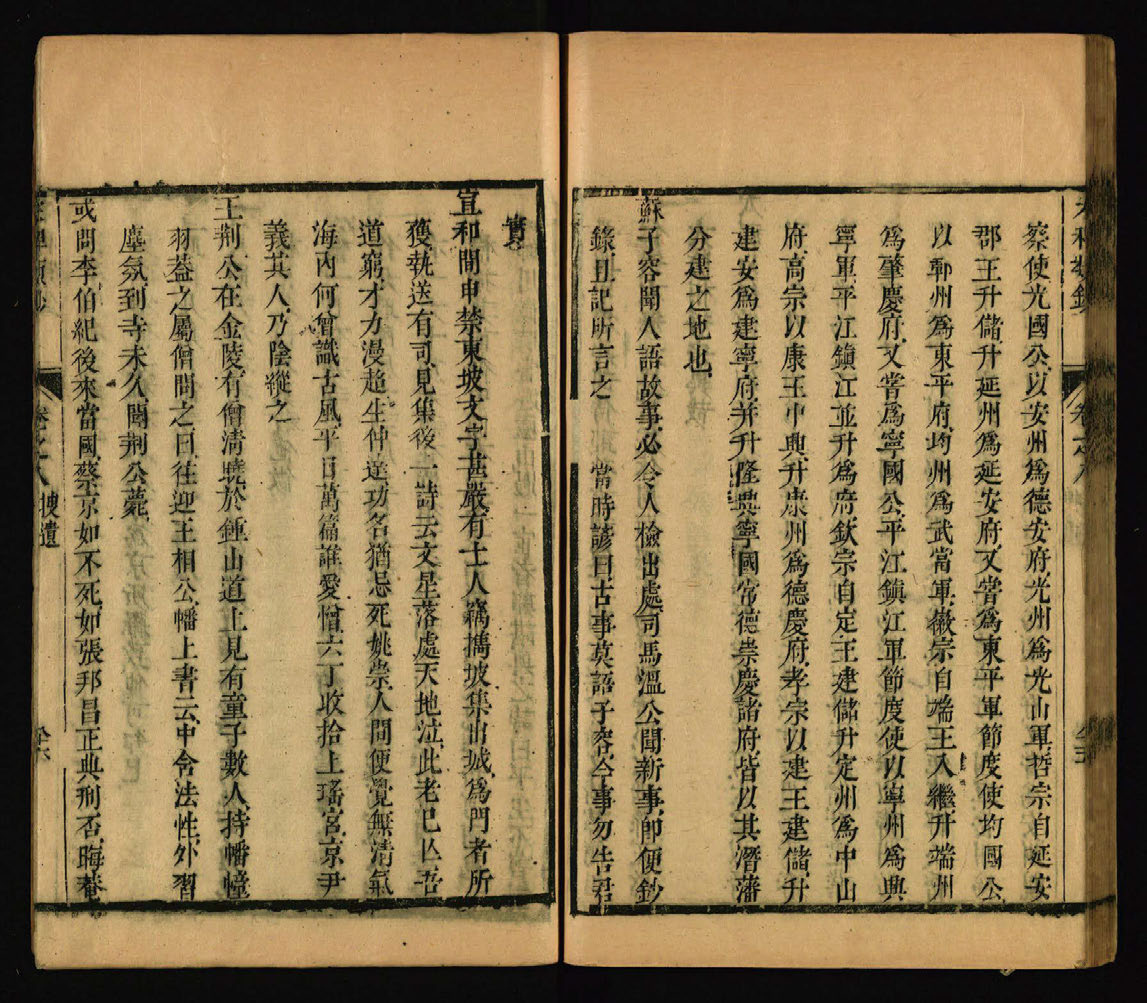 察使光國公以安州爲德安府光州爲光山軍哲宗自延安
郡王升儲升延州爲延安府又嘗爲東平軍節度使均國公
以鄆州爲東平府均州爲武當軍徽宗自端王入繼升端州
爲肇慶府又嘗爲寧國公平江鎮江軍節度使以寧州爲興
寧軍平江鎮江並升爲府欽宗自定王建儲升定州爲中山
府高宗以康王中興升康州爲德慶府孝宗以建王建儲升
建安爲建寧府并升隆興寧國常德崇慶諸府皆以其潛藩
分建之地也
蘇子容聞人語故事必令人檢出處司馬溫公聞新事即便鈔
錄且記所言之 當時諺曰古事莫語子容今事勿告君
實
宣和間申禁東坡文字甚嚴有士人竊攜坡集出城爲門者所
獲執送有司見集後一詩云文星落處天地泣此老已亡吾
道窮才力漫超生仲達功名猶忌死姚崇人間便覺無清氣
海內何曾識古風平日萬篇誰愛惜六丁收拾上瑤宮京尹
義其人乃陰縱之
王荊公在金陵有僧清曉於鍾山道上見有童子數人持幡幢
羽葢之屬僧問之曰往迎王相公幡上書云中含法性外習
塵氛到寺未久聞荊公薨
或問李伯紀後來當國蔡京如不死如張邦昌正典刑否晦菴
卷之八 搜遺